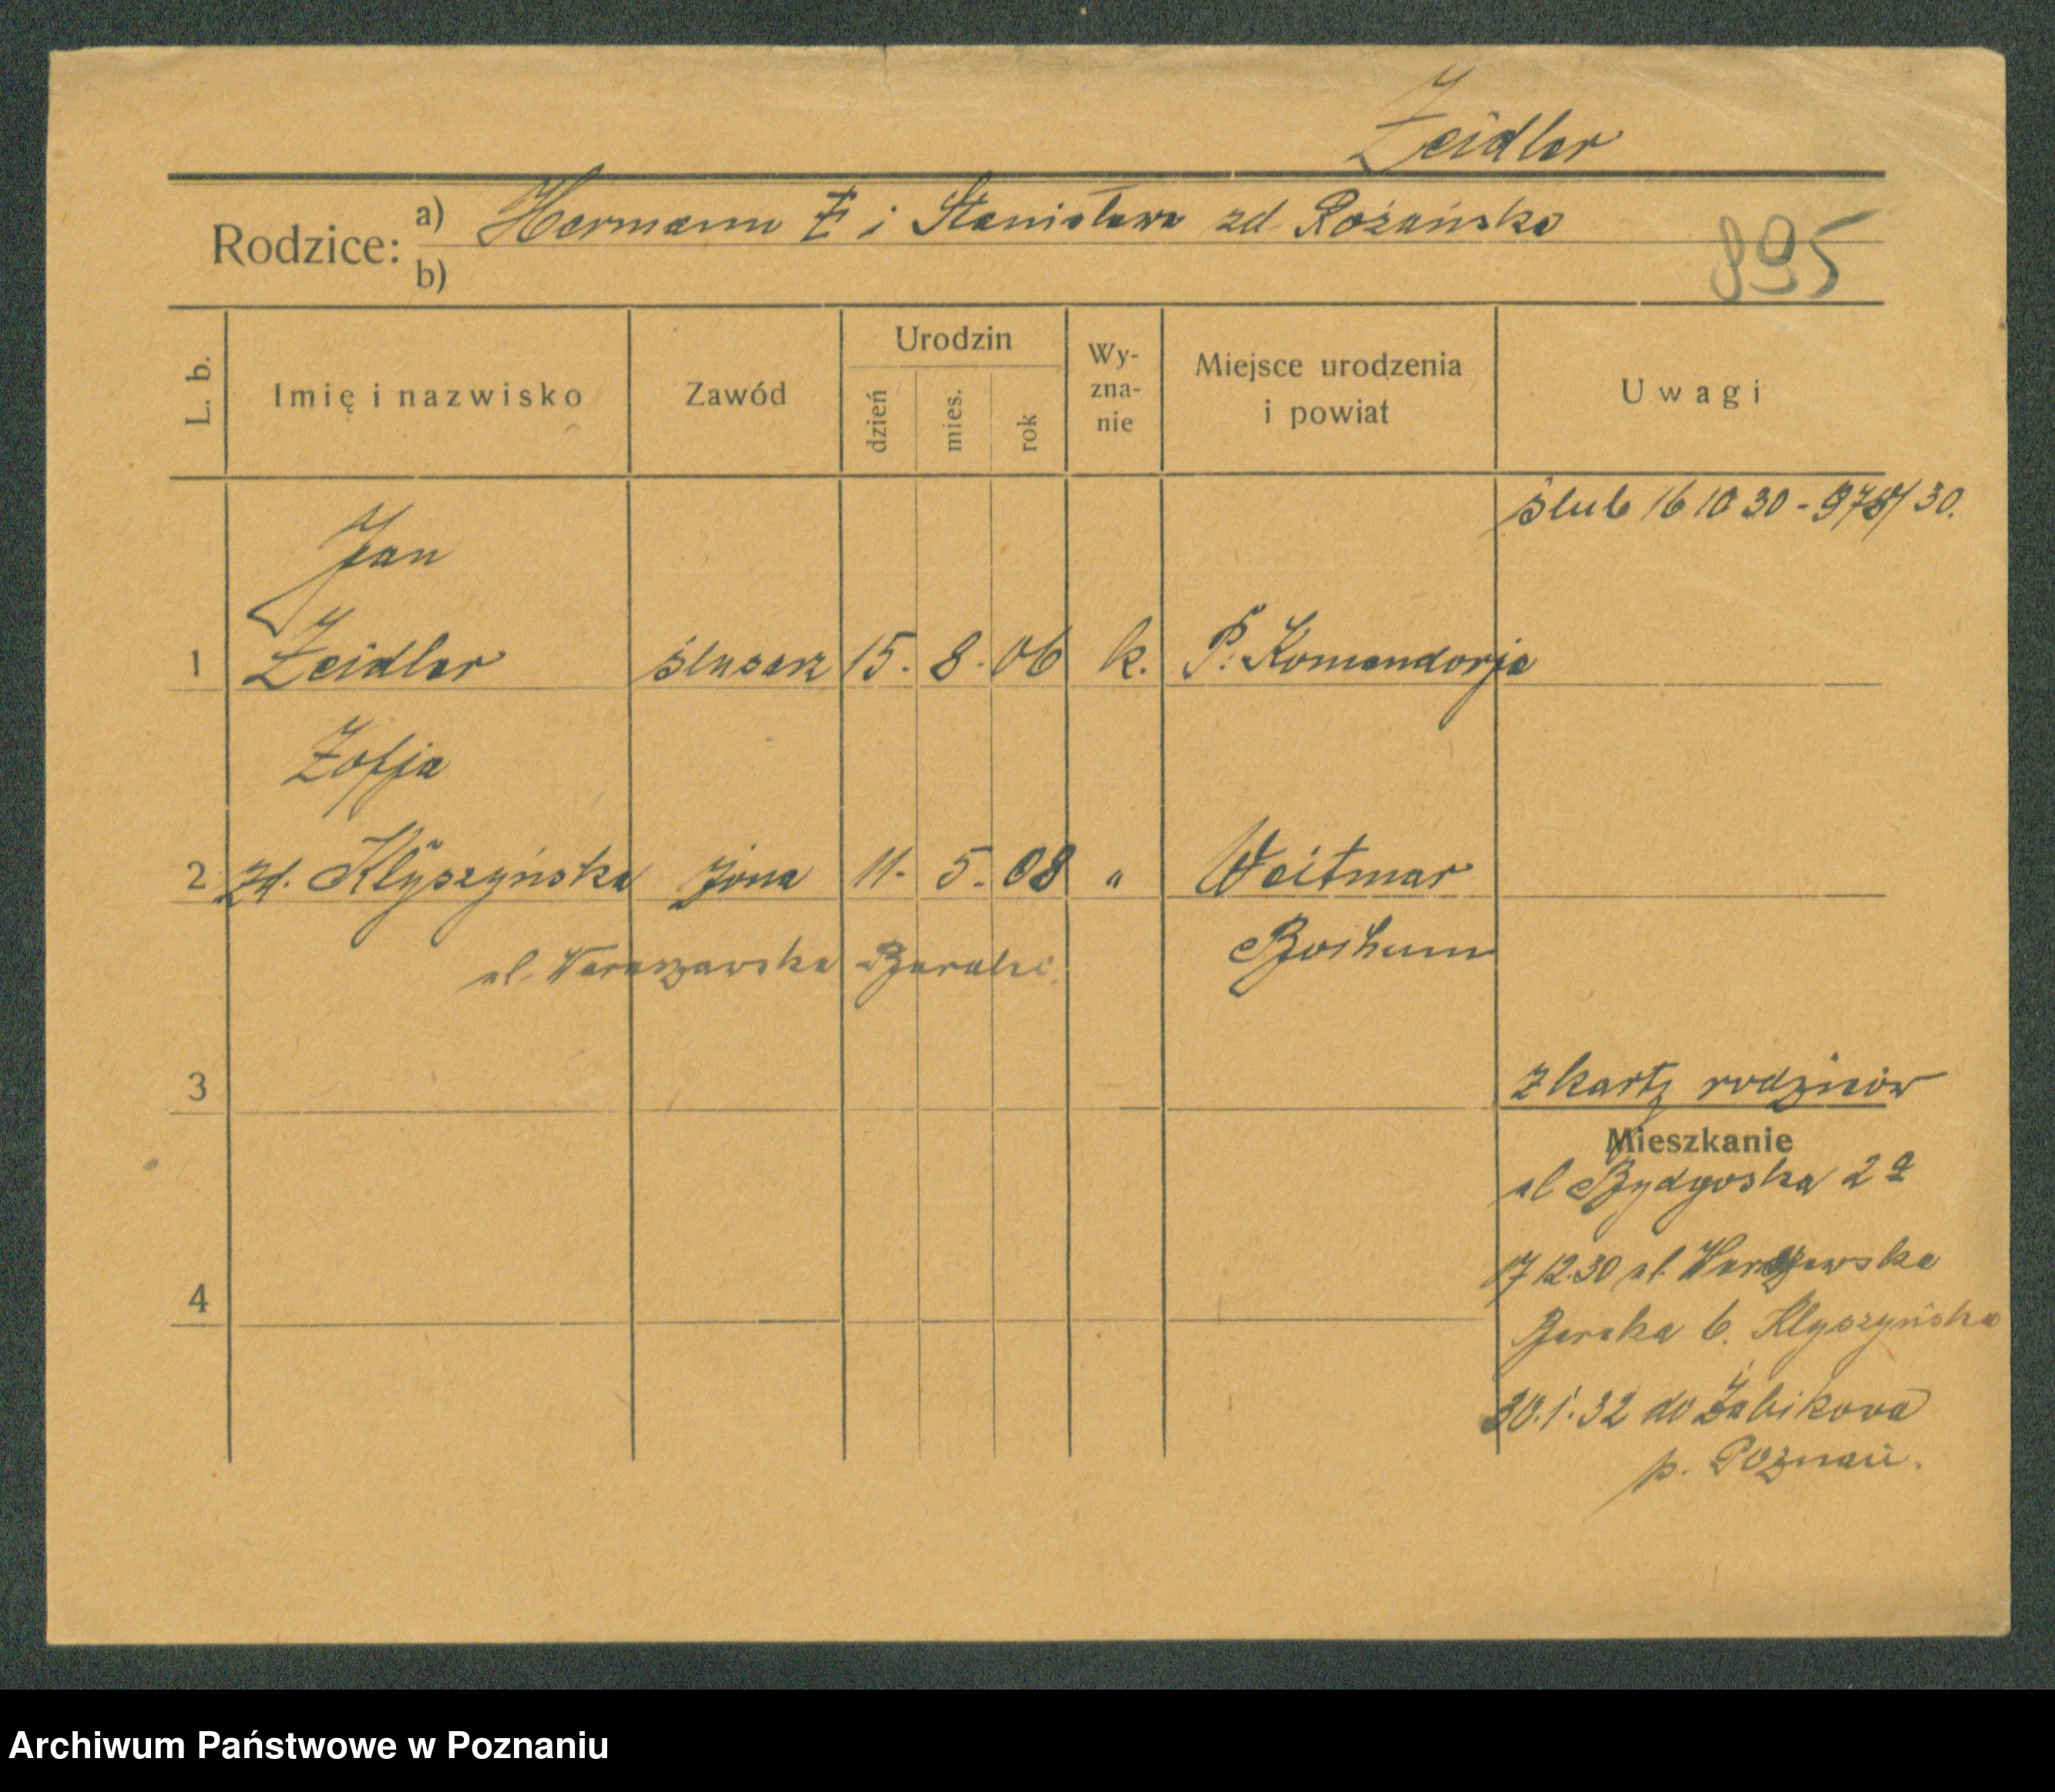 Zeidler
Rodzice: a) Hermann Z i Stanisława zd Rożańska
b)
895
L. b.
Imię i nazwisko
Zawód
Urodzin
dzień
mies.
rok
Wy-
zna-
nie
Miejsce urodzenia
i powiat
Uwagi
ślub 16 10 30 - 978/30.
Jan
1 Zeidler ślusarz 15. 8. 06 k. P. Komandorja
Zofja
2 zd. Kłyszyńska żona 11. 5. 08 " Weitmar
Bochum
ul. Warszawska Baraki
3
z karty rodziców
Mieszkanie
ul Bydgoska 2
17 12.30 ul. Warszawska
4
Baraka 6. Kłyszyńska
30.1.32 do Żabikowa
p. Poznań.
Archiwum Państwowe w Poznaniu